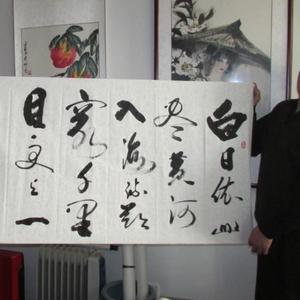 白日依山
尽黄河
入海流欲
窮千里
目更上一